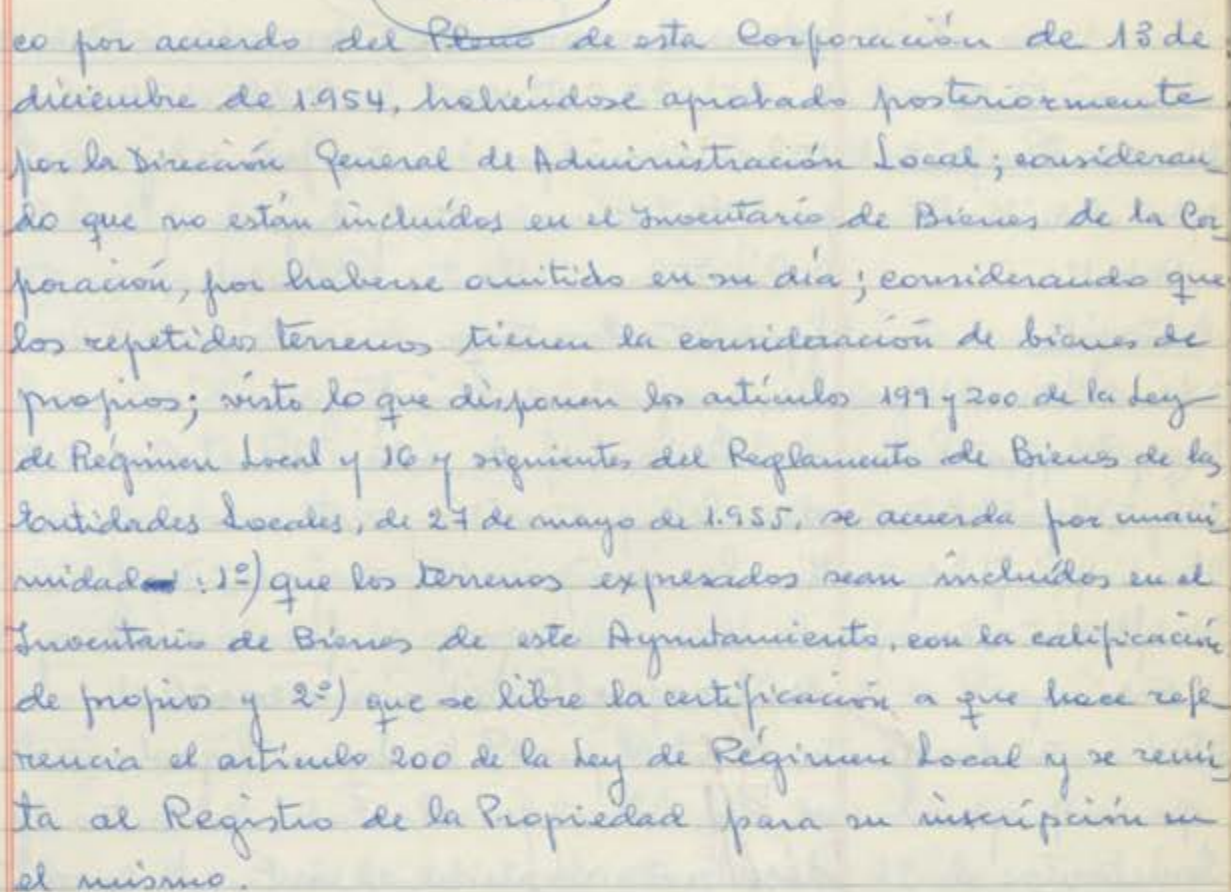 co por acuerdo del Pleno de esta Corporación de 13 de
diciembre de 1.954, habiéndose aprobado posteriormente
por la Dirección General de Administración Local; consideran_
do que no están incluídos en el Inventario de Bienes de la Cor_
poración, por haberse omitido en su día; considerando que
los repetidos terrenos tienen la consideración de bienes de
propios; visto lo que disponen los artículos 199 y 200 de la Ley
de Régimen Local y 16 y siguientes del Reglamento de Bienes de las
Entidades Locales, de 27 de mayo de 1.955, se acuerda por unani_
midad : 1º) que los terrenos expresados sean incluídos en el
Inventario de Bienes de este Ayuntamiento, con la calificación
de propios y 2º) que se libre la certificación a que hace refe_
rencia el artículo 200 de la Ley de Régimen Local y se remi_
ta al Registro de la Propiedad para su inscripción en
el mismo.